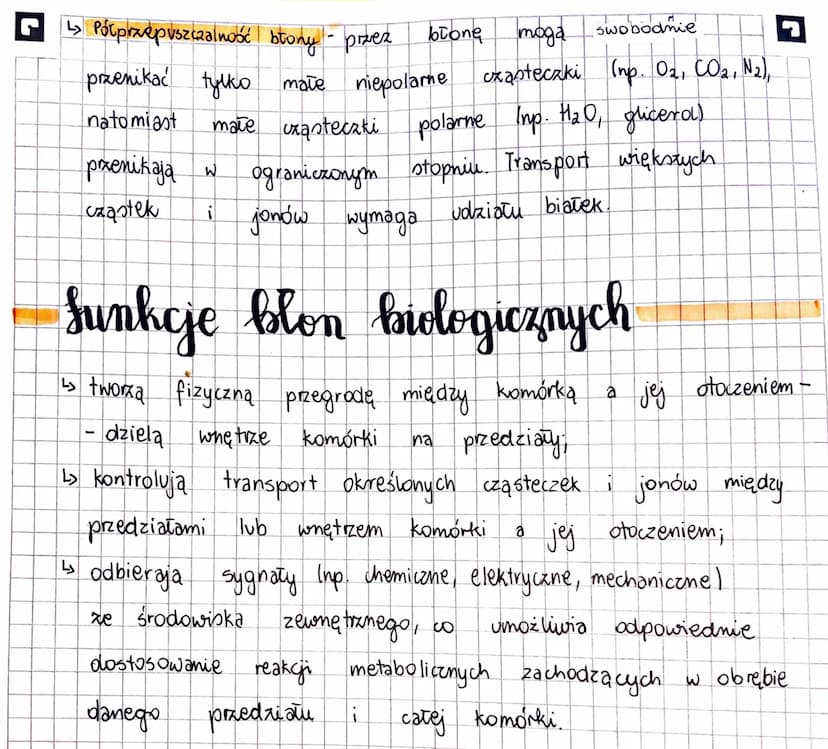 ↳ Półprzepuszczalność błony - przez błonę mogą swobodnie
przenikać tylko małe niepolarne cząsteczki (np. O2, CO2, N2),
natomiast małe cząsteczki polarne (np. H2O, glicerol)
przenikają w ograniczonym stopniu. Transport większych
cząstek i jonów wymaga udziału białek.
funkcje błon biologicznych
↳ tworzą fizyczną przegrodę między komórką a jej otoczeniem -
- dzielą wnętrze komórki na przedziały;
↳ kontrolują transport określonych cząsteczek i jonów między
przedziałami lub wnętrzem komórki a jej otoczeniem;
↳ odbierają sygnały (np. chemiczne, elektryczne, mechaniczne)
ze środowiska zewnętrznego, co umożliwia odpowiednie
dostosowanie reakcji metabolicznych zachodzących w obrębie
danego przedziału i całej komórki.